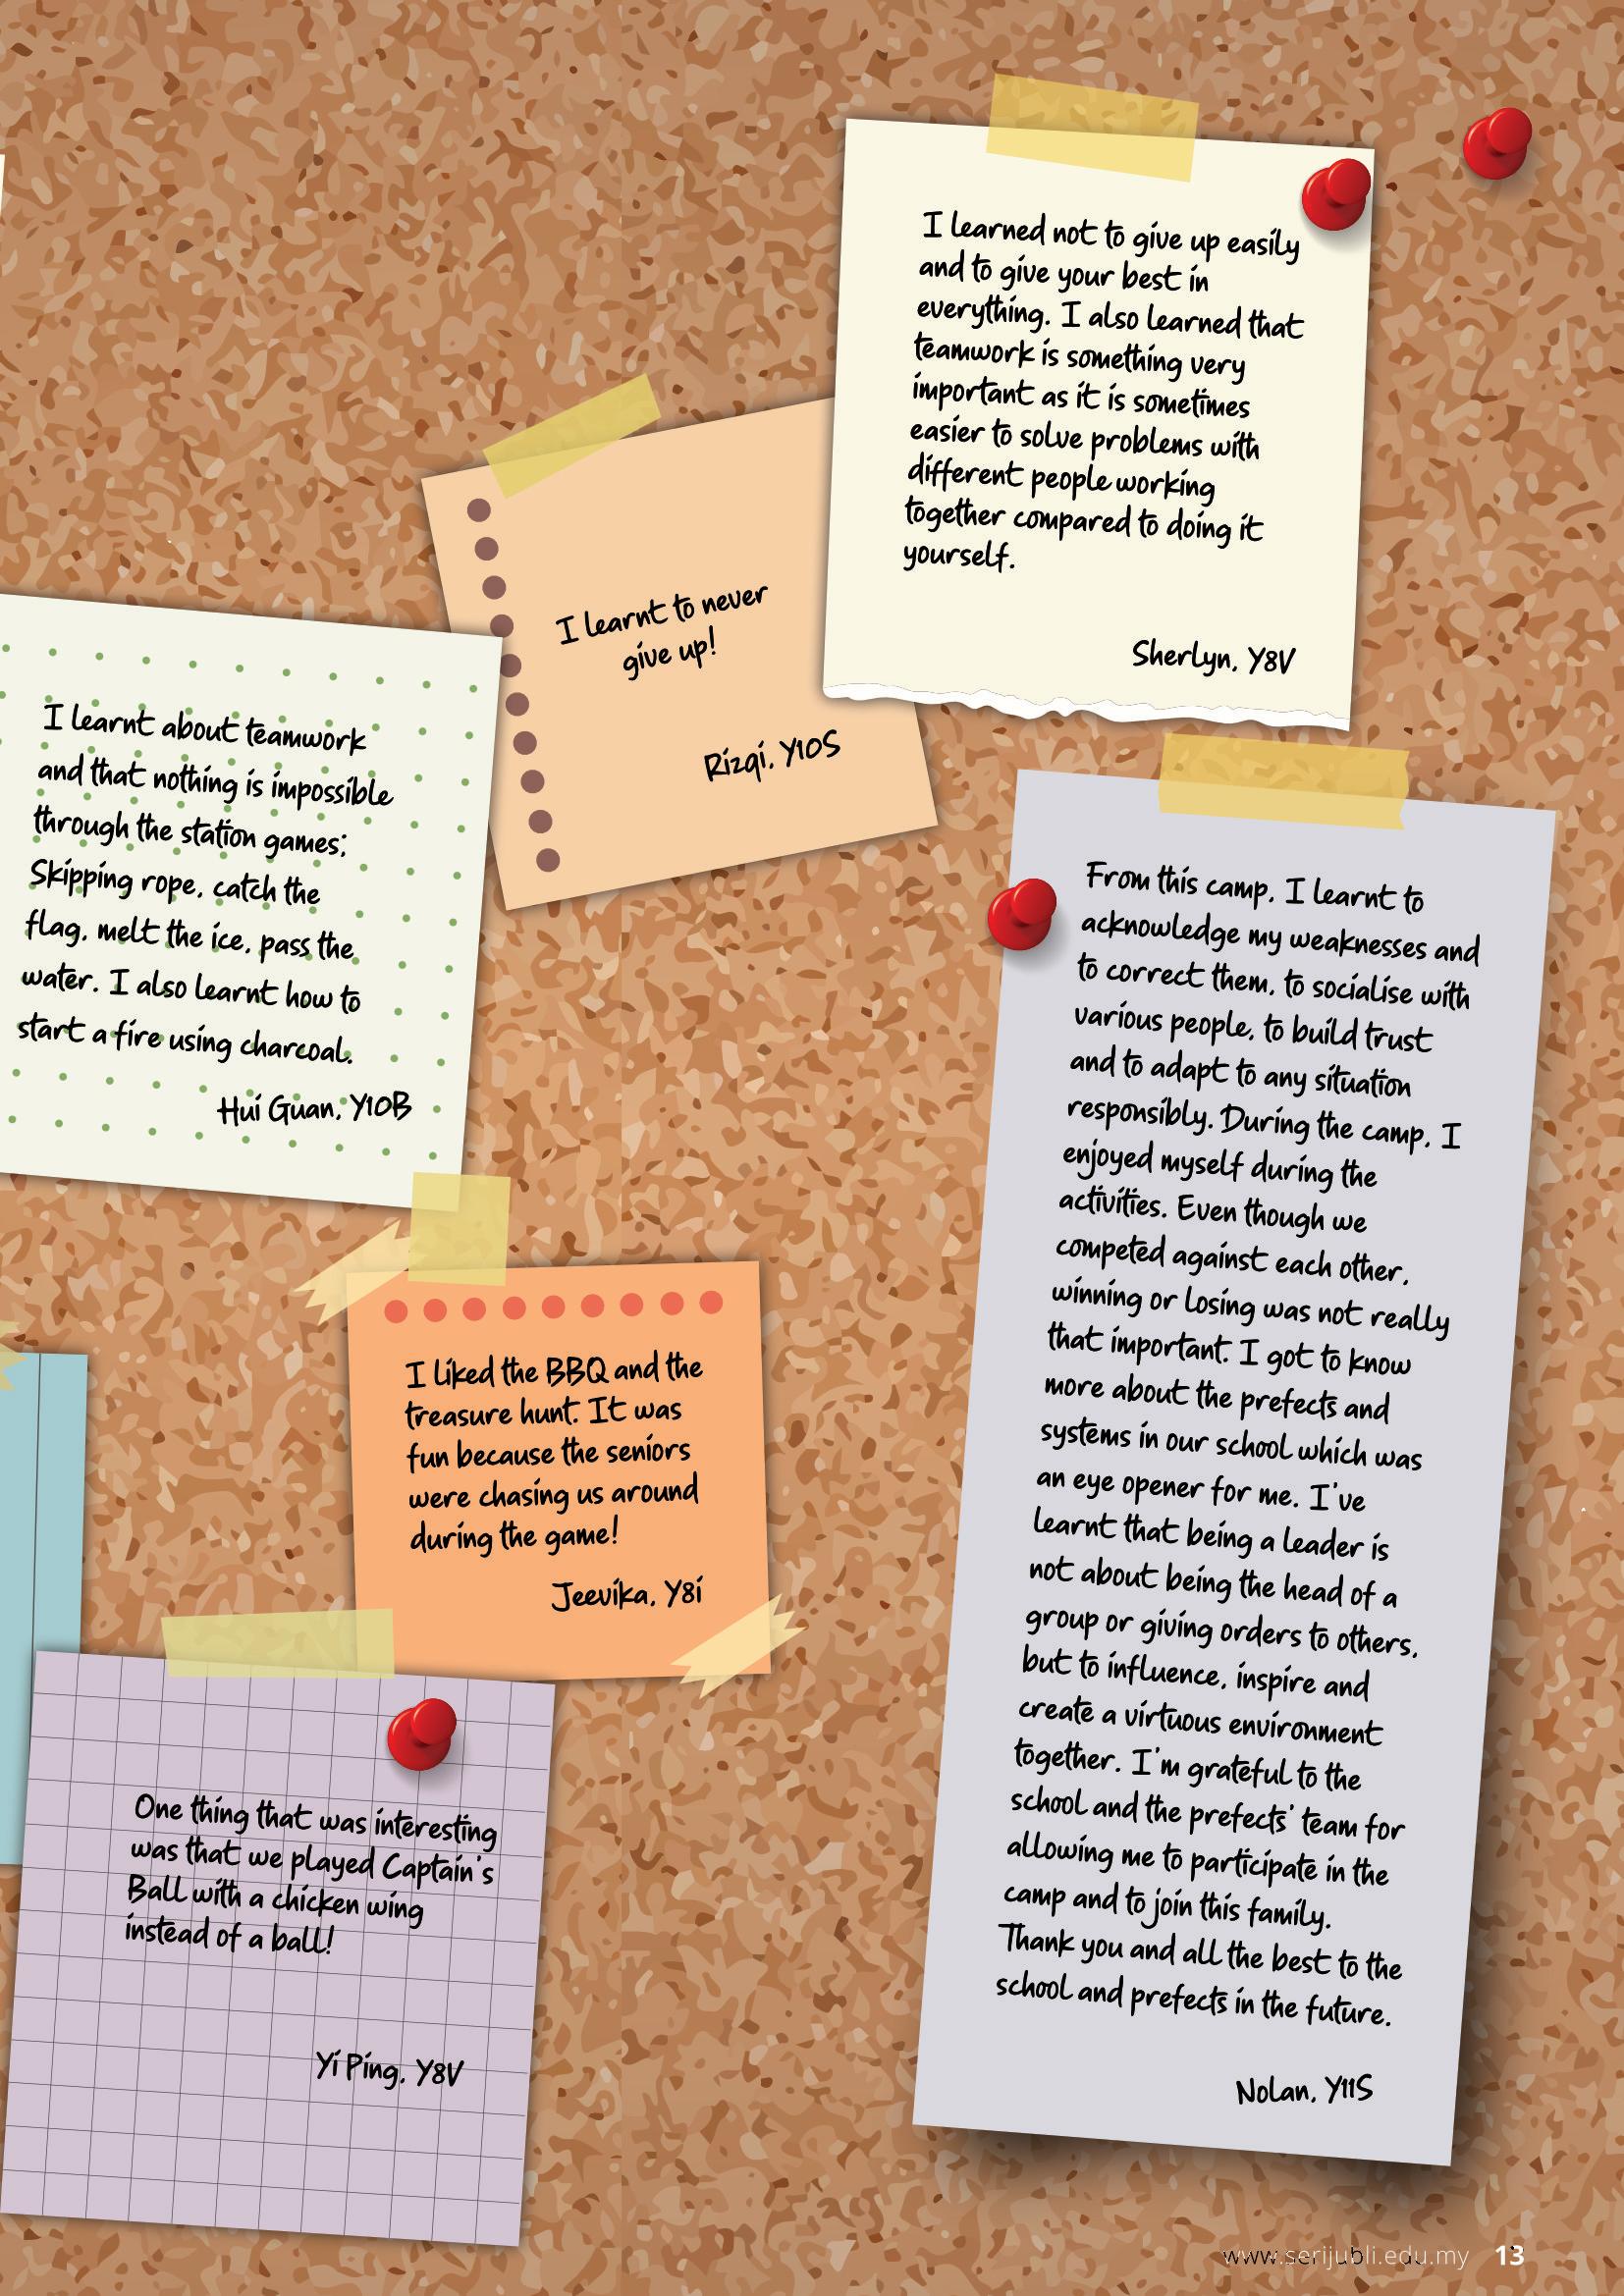 I learned not to give up easily
and to give your best in
everything. I also learned that
teamwork is something very
important as it is sometimes
easier to solve problems with
different people working
together compared to doing it
yourself.
Sherlyn, Y8V
I learnt to never
give up!
Rizqi, Y10S
I learnt about teamwork
and that nothing is impossible
through the station games;
Skipping rope, catch the
flag, melt the ice, pass the
water. I also learnt how to
start a fire using charcoal.
Hui Guan, Y10B
From this camp, I learnt to
acknowledge my weaknesses and
to correct them, to socialise with
various people, to build trust
and to adapt to any situation
responsibly. During the camp, I
enjoyed myself during the
activities. Even though we
competed against each other,
winning or losing was not really
that important. I got to know
more about the prefects and
systems in our school which was
an eye opener for me. I've
learnt that being a leader is
not about being the head of a
group or giving orders to others,
but to influence, inspire and
create a virtuous environment
together. I'm grateful to the
school and the prefects' team for
allowing me to participate in the
camp and to join this family.
Thank you and all the best to the
school and prefects in the future.
Nolan, Y11S
I liked the BBQ and the
treasure hunt. It was
fun because the seniors
were chasing us around
during the game!
Jeevika, Y8i
One thing that was interesting
was that we played Captain's
Ball with a chicken wing
instead of a ball!
Yi Ping, Y8V
www.serijubli.edu.my 13